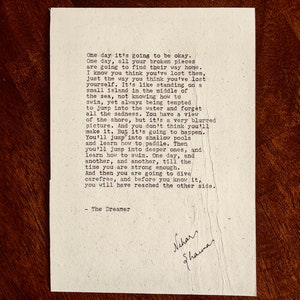 One day it's going to be okay.
One day, all your broken pieces
are going to find their way home.
I know you think you've lost them,
just the way you think you've lost
yourself. It's like standing on a
small island in the middle of
the sea, not knowing how to
swim, yet always being tempted
to jump into the water and forget
all the sadness. You have a view
of the shore, but it's a very blurred
picture. And you don't think you'll
make it. But it's going to happen.
You'll jump into shallow pools
and learn how to paddle. Then
you'll jump into deeper ones, and
learn how to swim. One day, and
another, and another, till the
time you are strong enough.
And then you are going to dive
carefree, and before you know it,
you will have reached the other side.
- The Dreamer